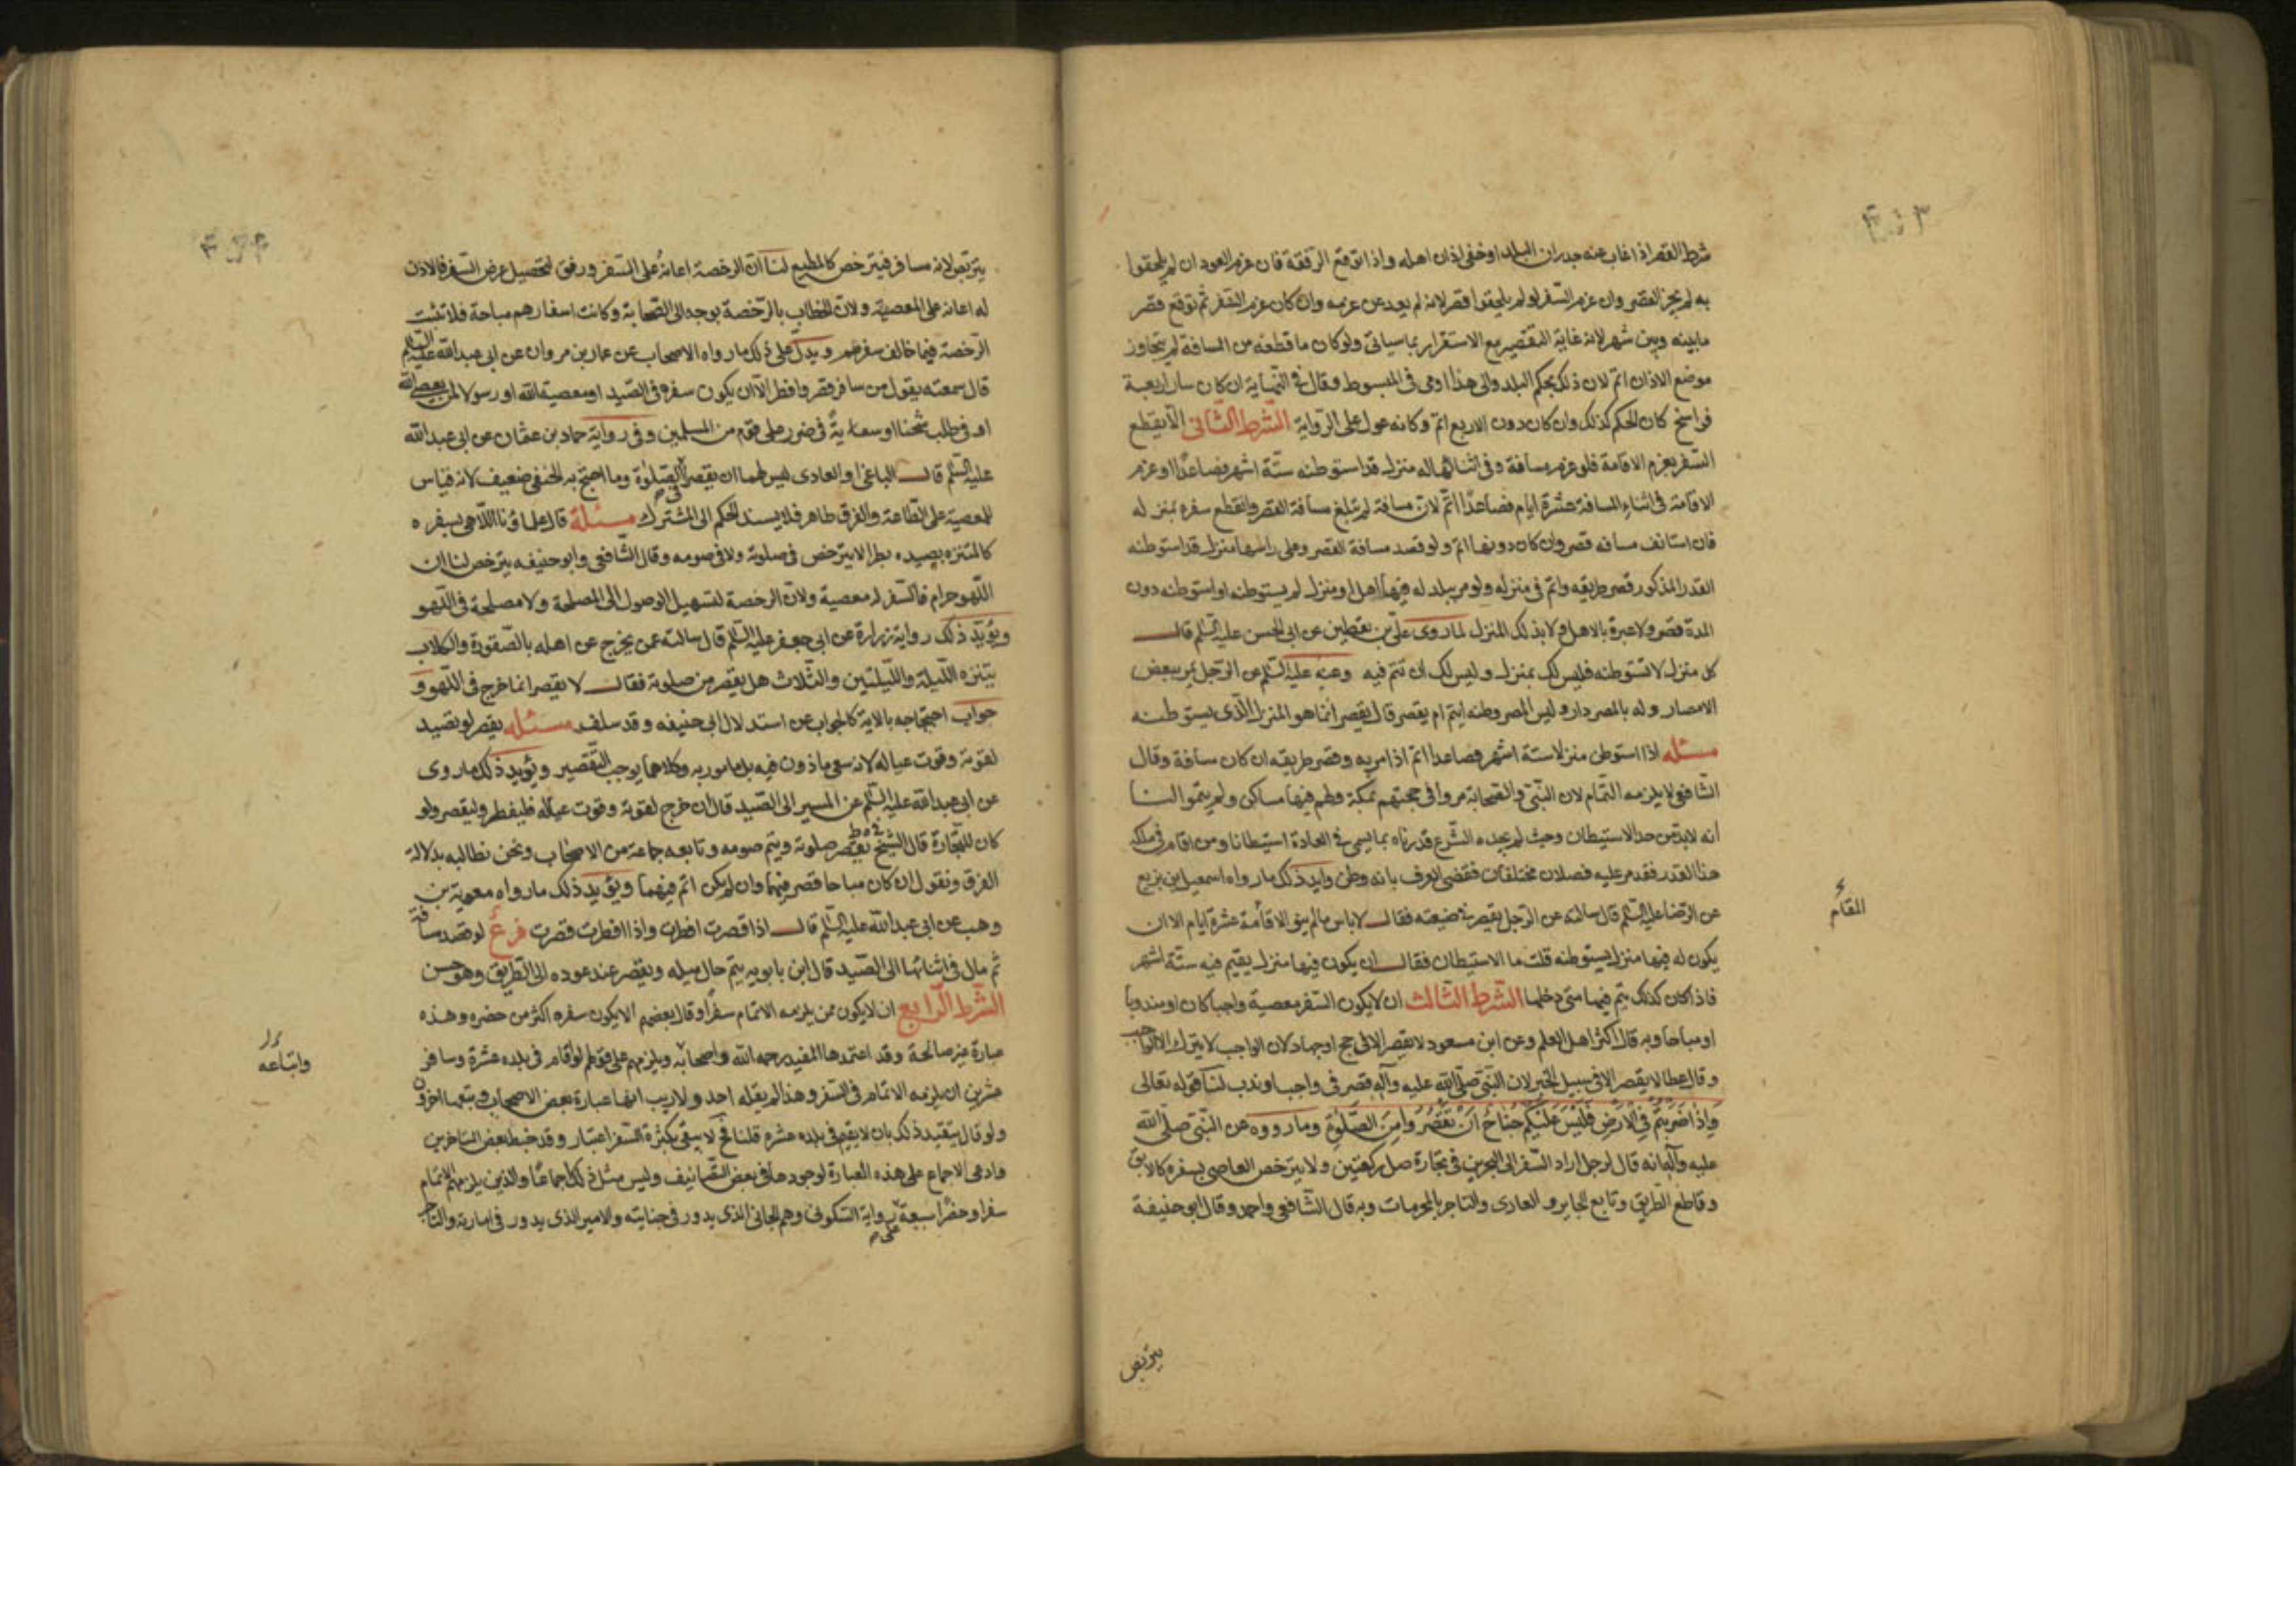 شرط القصر اذا غاب عنه جدران البلد او خفی اذان اهله واذا توقع الرفقة فان عزم العود ان لم یلحقوا
به لم یجز القصر وان عزم السفر لو لم یلحقوا قصر لانه لم یعد عن عزمه وان کان عزم السفر ثم توقع قصر
مابینه وبین شهر لانه غایة التقصیر مع الاستقرار بما سیاتی ولو کان ما قطعه من المسافة لم یتجاوز
موضع الاذان اتم لان ذلک بحکم البلد والی هذا اومی فی المبسوط وقال فی النهایة ان کان سار اربعة
فراسخ کان الحکم کذلک وان کان دون الاربع اتم وکانه عول علی الروایة الشرط الثانی الا یقطع
السفر بعزم الاقامة فلو عزم مسافة وفی اثنائها له منزل قد استوطنه ستة اشهر فصاعدا او عزم
الاقامة فی اثناء المسافة عشرة ایام فصاعدا اتم لان مسافة لم تبلغ مسافة القصر وانقطع سفره بمنزله
فان استانف مسافه قصر وان کان دونها اتم ولو قصد مسافة القصر وعلی راسها منزل قد استوطنه
القدر المذکور قصر طریقه واتم فی منزله ولو مر ببلد له فیها اهل او منزل لم یستوطنه او استوطنه دون
المدة قصر ولا عبرة بالاهل ولا بذلک المنزل لما روی علی بن یقطین عن ابی الحسن علیه السلم قال
کل منزل لا تستوطنه فلیس لک بمنزل ولیس لک ان تتم فیه وعنه علیه السلم عن الرجل یمر ببعض
الامصار وله بالمصر دار ولیس المصر وطنه ایتم ام یقصر قال یقصر انما هو المنزل الذی یستوطنه
مسئله اذا استوطن منزلا ستة اشهر فصاعدا اتم اذا مر به وقصر طریقه ان کان مسافة وقال
الشافعی لا یلزمه التمام لان النبی والصحابة مروا فی حجتهم بمکة ولهم فیها مساکن ولم یتموا لنا
انه لابد من حد الاستیطان وحیث لم یحده الشرع قدرناه بما یسمی فی العادة استیطانا ومن اقام فی ملکه
هذا القدر فقد مر علیه فصلان مختلفان فقضی العرف بانه وطن واید ذلک ما رواه اسمعیل بن بزیع
عن الرضا علیه السلم قال سالته عن الرجل یقصر فی ضیعته فقال لا باس ما لم ینو الاقامة عشرة ایام الا ان
المقام
یکون له فیها منزل یستوطنه قلت ما الاستیطان فقال ان یکون فیها منزل یقیم فیه ستة اشهر
فاذا کان کذلک یتم فیها متی دخلها الشرط الثالث ان لا یکون السفر معصیة واجبا کان او مندوبا
او مباحا وبه قال اکثر اهل العلم وعن ابن مسعود لا یقصر الا فی حج او جهاد لان الواجب لا یترک الا لواجب
وقال عطا لا یقصر الا فی سبیل الخیر لان النبی صلی الله علیه وآله قصر فی واجب او ندب لنا قوله تعالی
وَاِذَا ضَرَبْتُم فِی الْاَرْضِ فَلَیْسَ عَلَیْکُم جُنَاحٌ اَنْ تَقْصُرُوا مِنَ الصَّلوةِ وما رووه عن النبی صلی الله
علیه وآله انه قال لرجل اراد السفر الی البحرین فی تجارة صل رکعتین ولا یترخص العاصی بسفره کالابق
وقاطع الطریق وتابع الجایر والعادی والتاجر بالمحرمات وبه قال الشافعی واحمد وقال ابو حنیفة
یترخص
یترخص لانه مسافر فیترخص کالمطیع لنا ان الرخصة اعانة علی السفر ورفق لتحصیل غرض السفر فالاذن
له اعانة علی المعصیة ولان الخطاب بالرخصة توجه الی الصحابة وکانت اسفارهم مباحة فلا تثبت
الرخصة فیما خالف سفرهم ویدل علی ذلک ما رواه الاصحاب عن عمار بن مروان عن ابی عبدالله علیه السلم
قال سمعته یقول من سافر قصر وافطر الا ان یکون سفره فی الصید او معصیة الله او رسولا لمن یعصی الله
او فی طلب شحناء او سعایة فی ضرر علی قوم من المسلمین وفی روایة حماد بن عثمان عن ابی عبدالله
علیه السلم قال الباغی او العادی لیس لهما ان یقصرا الصلوة وما احتج به الحنفی ضعیف لانه قیاس
للمعصیة علی الطاعة والفرق ظاهر فلا یسند الحکم الی المشترک مسئلة قال علماؤنا اللاهی بسفره
کالمتنزه بصیده بطرا لا یترخص فی صلوته ولا فی صومه وقال الشافعی وابو حنیفه یترخص لنا ان
اللهو حرام فالسفر له معصیة ولان الرخصة لتسهیل الوصول الی المصلحة ولا مصلحة فی اللهو
ویؤید ذلک روایة زرارة عن ابی جعفر علیه السلم قال سالته عمن یخرج عن اهله بالصقورة والکلاب
یتنزه اللیلة واللیلتین والثلاث هل یقصر من صلوته فقال لا یقصر انما خرج فی اللهو و
جواب احتجاجه بالایة کالجواب عن استدلال ابی حنیفه وقد سلف مسئله یقصر لو تصید
لقوته وقوت عیاله لانه سعی ماذون فیه بل مامور به وکلاهما یوجب التقصیر ویؤید ذلک ما روی
عن ابی عبدالله علیه السلم عن المسیر الی الصید قال ان خرج لقوته وقوت عیاله فلیفطر ولیقصر ولو
کان للتجارة قال الشیخ فی ط یقصر صلوته ویتم صومه وتابعه جماعة من الاصحاب ونحن نطالبه بدلالة
الفرق ونقول ان کان مباحا قصر فیهما وان لم یکن اتم فیهما ویؤید ذلک ما رواه معویة بن
وهب عن ابی عبدالله علیه السلم قال اذا قصرت افطرت واذا افطرت قصرت فرع لو قصد مسافة
ثم مال فی اثنائها الی الصید قال ابن بابویه یتم حال میله ویقصر عند عوده الی الطریق وهو حسن
الشرط الرابع ان لا یکون ممن یلزمه الاتمام سفرا وقال بعضهم الا یکون سفره اکثر من حضره وهذه
عبارة غیر صالحة وقد اعتمدها المفید رحمه الله واصحابه ویلزمهم علی قولهم لو اقام فی بلده عشرة وسافر
واتباعه
عشرین ان یلزمه الاتمام فی السفر وهذا لم یقله احد ولا ریب انها عبارة بعض الاصحاب وتبعها اخرون
ولو قال یتقید ذلک بان لا یقیم فی بلده عشرة قلنا فح لا یبقی بکثرة السفر اعتبار وقد خبط بعض المتاخرین
وادعی الاجماع علی هذه العبارة لوجودها فی بعض التصانیف ولیس مثل ذلک اجماعا والذین یلزمهم الاتمام
سفرا وحضرا سبعة علی روایة السکونی وهم الجابی الذی یدور فی جبایته والامیر الذی یدور فی امارته والتاجر